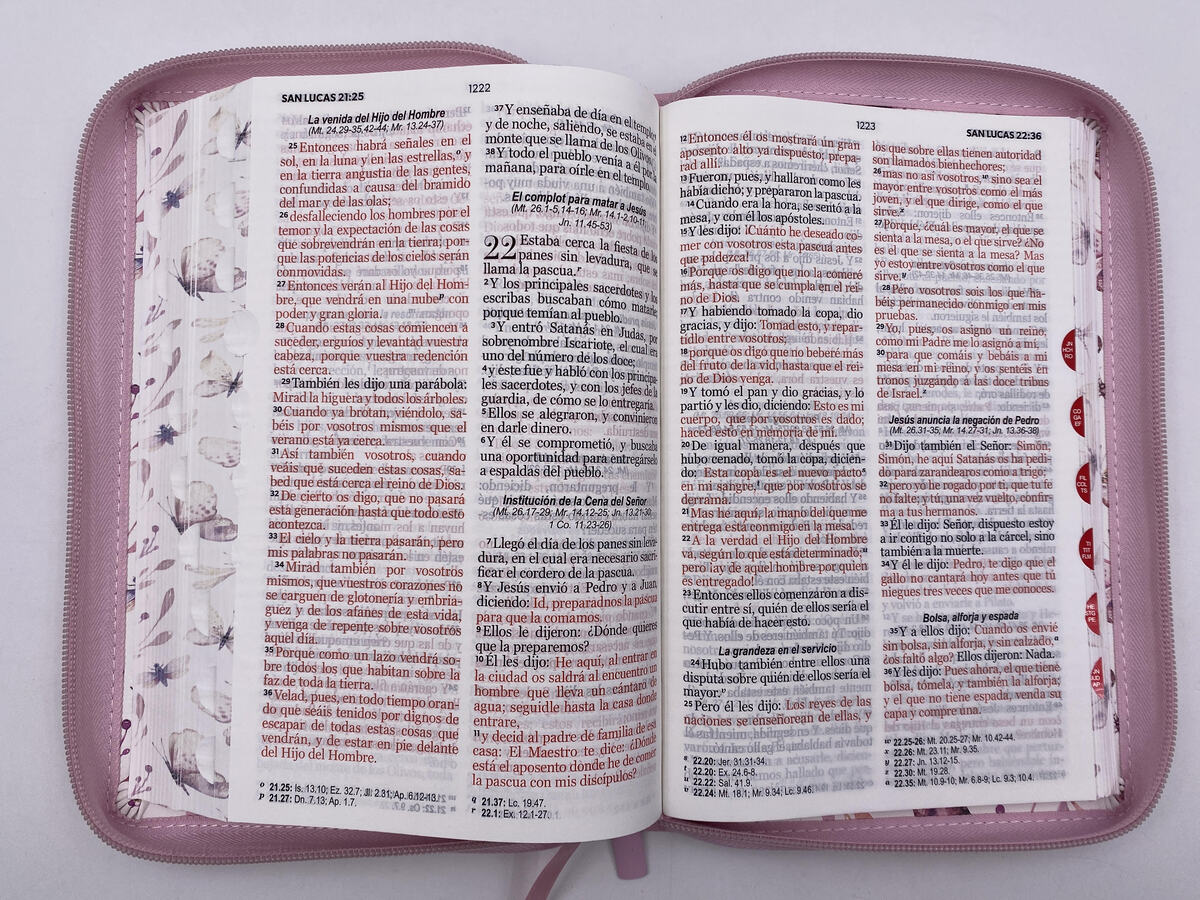 SAN LUCAS 21:25
1222
La venida del Hijo del Hombre
(Mt. 24.29-35,42-44; Mr. 13.24-37)
25 Entonces habrá señales en el
sol, en la luna y en las estrellas,o y
en la tierra angustia de las gentes,
confundidas a causa del bramido
del mar y de las olas;
26 desfalleciendo los hombres por el
temor y la expectación de las cosas
que sobrevendrán en la tierra; por-
que las potencias de los cielos serán
conmovidas.
27 Entonces verán al Hijo del Hom-
bre, que vendrá en una nubep con
poder y gran gloria.
28 Cuando estas cosas comiencen a
suceder, erguíos y levantad vuestra
cabeza, porque vuestra redención
está cerca.
29 También les dijo una parábola:
Mirad la higuera y todos los árboles.
30 Cuando ya brotan, viéndolo, sa-
béis por vosotros mismos que el
verano está ya cerca.
31 Así también vosotros, cuando
veáis que suceden estas cosas, sa-
bed que está cerca el reino de Dios.
32 De cierto os digo, que no pasará
esta generación hasta que todo esto
acontezca.
33 El cielo y la tierra pasarán, pero
mis palabras no pasarán.
34 Mirad también por vosotros
mismos, que vuestros corazones no
se carguen de glotonería y embria-
guez y de los afanes de esta vida,
y venga de repente sobre vosotros
aquel día.
35 Porque como un lazo vendrá so-
bre todos los que habitan sobre la
faz de toda la tierra.
36 Velad, pues, en todo tiempo oran-
do que seáis tenidos por dignos de
escapar de todas estas cosas que
vendrán, y de estar en pie delante
del Hijo del Hombre.
o 21.25: Is. 13.10; Ez. 32.7; Jl. 2.31; Ap. 6.12-13.
p 21.27: Dn. 7.13; Ap. 1.7.
37 Y enseñaba de día en el templo;
y de noche, saliendo, se estaba en el
monte que se llama de los Olivos.
38 Y todo el pueblo venía a él por la
mañana, para oírle en el templo.
El complot para matar a Jesús
(Mt. 26.1-5,14-16; Mr. 14.1-2,10-11;
Jn. 11.45-53)
22 Estaba cerca la fiesta de los
panes sin levadura, que se
llama la pascua.r
2 Y los principales sacerdotes y los
escribas buscaban cómo matarle;
porque temían al pueblo.
3 Y entró Satanás en Judas, por
sobrenombre Iscariote, el cual era
uno del número de los doce;
4 y este fue y habló con los principa-
les sacerdotes, y con los jefes de la
guardia, de cómo se lo entregaría.
5 Ellos se alegraron, y convinieron
en darle dinero.
6 Y él se comprometió, y buscaba
una oportunidad para entregárselo
a espaldas del pueblo.
Institución de la Cena del Señor
(Mt. 26.17-29; Mr. 14.12-25; Jn. 13.21-30;
1 Co. 11.23-26)
7 Llegó el día de los panes sin leva-
dura, en el cual era necesario sacri-
ficar el cordero de la pascua.
8 Y Jesús envió a Pedro y a Juan,
diciendo: Id, preparadnos la pascua
para que la comamos.
9 Ellos le dijeron: ¿Dónde quieres
que la preparemos?
10 Él les dijo: He aquí, al entrar en
la ciudad os saldrá al encuentro un
hombre que lleva un cántaro de
agua; seguidle hasta la casa donde
entrare,
11 y decid al padre de familia de esa
casa: El Maestro te dice: ¿Dónde
está el aposento donde he de comer
la pascua con mis discípulos?
q 21.37: Lc. 19.47.
r 22.1: Ex. 12.1-27.
1223
SAN LUCAS 22:36
12 Entonces él os mostrará un gran
aposento alto ya dispuesto; prepa-
rad allí.
13 Fueron, pues, y hallaron como les
había dicho; y prepararon la pascua.
14 Cuando era la hora, se sentó a la
mesa, y con él los apóstoles.
15 Y les dijo: ¡Cuánto he deseado co-
mer con vosotros esta pascua antes
que padezca!
16 Porque os digo que no la comeré
más, hasta que se cumpla en el rei-
no de Dios.
17 Y habiendo tomado la copa, dio
gracias, y dijo: Tomad esto, y repar-
tidlo entre vosotros;
18 porque os digo que no beberé más
del fruto de la vid, hasta que el rei-
no de Dios venga.
19 Y tomó el pan y dio gracias, y lo
partió y les dio, diciendo: Esto es mi
cuerpo, que por vosotros es dado;
haced esto en memoria de mí.
20 De igual manera, después que
hubo cenado, tomó la copa, dicien-
do: Esta copa es el nuevo pactos
en mi sangre,t que por vosotros se
derrama.
21 Mas he aquí, la mano del que me
entrega está conmigo en la mesa.
22 A la verdad el Hijo del Hombre
va, según lo que está determinado;u
pero ¡ay de aquel hombre por quien
es entregado!
23 Entonces ellos comenzaron a dis-
cutir entre sí, quién de ellos sería el
que había de hacer esto.
La grandeza en el servicio
24 Hubo también entre ellos una
disputa sobre quién de ellos sería el
mayor.v
25 Pero él les dijo: Los reyes de las
naciones se enseñorean de ellas, y
s 22.20: Jer. 31.31-34.
t 22.20: Ex. 24.6-8.
u 22.22: Sal. 41.9.
v 22.24: Mt. 18.1; Mr. 9.34; Lc. 9.46.
los que sobre ellas tienen autoridad
son llamados bienhechores;
26 mas no así vosotros,w sino sea el
mayor entre vosotros como el más
joven, y el que dirige, como el que
sirve.x
27 Porque, ¿cuál es mayor, el que se
sienta a la mesa, o el que sirve? ¿No
es el que se sienta a la mesa? Mas
yo estoy entre vosotros como el que
sirve.y
28 Pero vosotros sois los que ha-
béis permanecido conmigo en mis
pruebas.
29 Yo, pues, os asigno un reino,
como mi Padre me lo asignó a mí,
30 para que comáis y bebáis a mi
mesa en mi reino, y os sentéis en
tronos juzgando a las doce tribus
de Israel.z
Jesús anuncia la negación de Pedro
(Mt. 26.31-35; Mr. 14.27-31; Jn. 13.36-38)
31 Dijo también el Señor: Simón,
Simón, he aquí Satanás os ha pedi-
do para zarandearos como a trigo;
32 pero yo he rogado por ti, que tu fe
no falte; y tú, una vez vuelto, confir-
ma a tus hermanos.
33 Él le dijo: Señor, dispuesto estoy
a ir contigo no solo a la cárcel, sino
también a la muerte.
34 Y él le dijo: Pedro, te digo que el
gallo no cantará hoy antes que tú
niegues tres veces que me conoces.
Bolsa, alforja y espada
35 Y a ellos dijo: Cuando os envié
sin bolsa, sin alforja, y sin calzado,a
¿os faltó algo? Ellos dijeron: Nada.
36 Y les dijo: Pues ahora, el que tiene
bolsa, tómela, y también la alforja;
y el que no tiene espada, venda su
capa y compre una.
w 22.25-26: Mt. 20.25-27; Mr. 10.42-44.
x 22.26: Mt. 23.11; Mr. 9.35.
y 22.27: Jn. 13.12-15.
z 22.30: Mt. 19.28.
a 22.35: Mt. 10.9-10; Mr. 6.8-9; Lc. 9.3; 10.4.